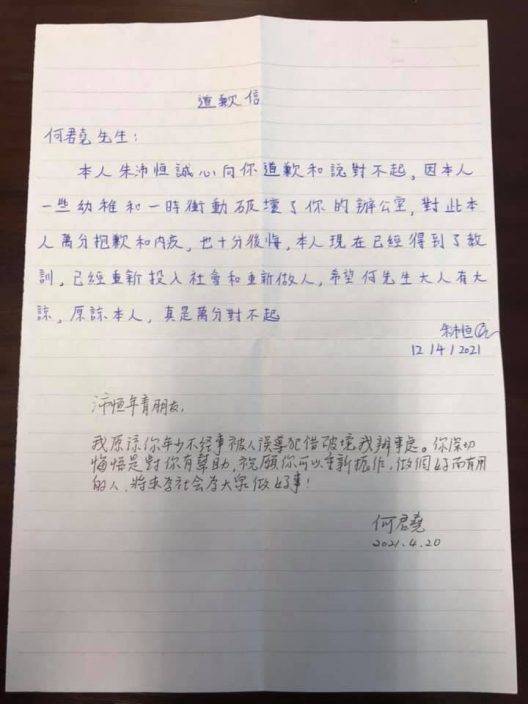 道歉信
何君堯先生:
本人朱沛恒誠心向你道歉和說對不起,因本人
一些幼稚和一時衝動破壞了你的辦公室,對此本
人萬分抱歉和内疚,也十分後悔,本人現在已經得到了教
訓,已經重新投入社會和重新做人,希望何先生大人有大
諒,原諒本人,真是萬分對不起
朱沛恒
12/4/2021
沛恒年青朋友,
我原諒你年少不經事被人誤導犯错破壞我辦事處。你深切
悔悟是對你有幫助,祝願你可以重新振作,做個好而有用
的人,將來為社會為大眾做好事!
何君堯
2021.4.20